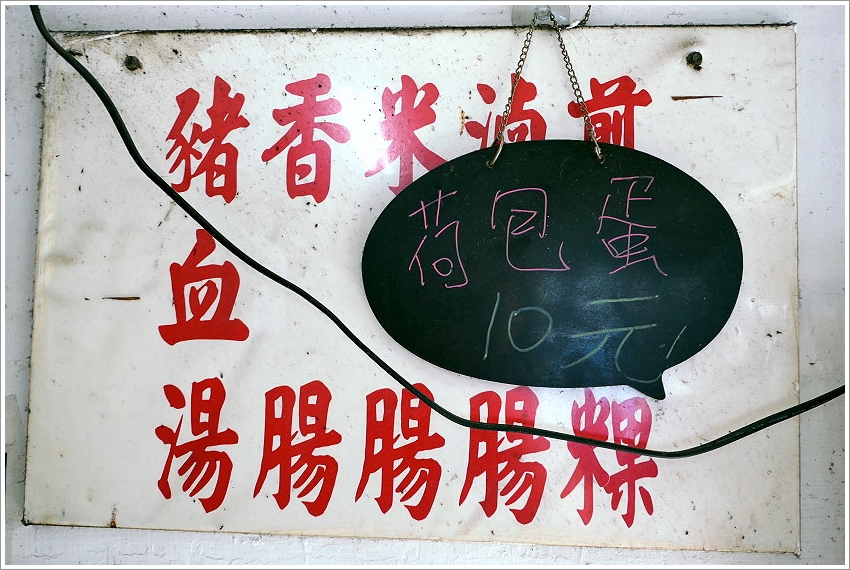 煎粿
滷腸
米腸
香腸
豬血湯
荷包蛋
10元